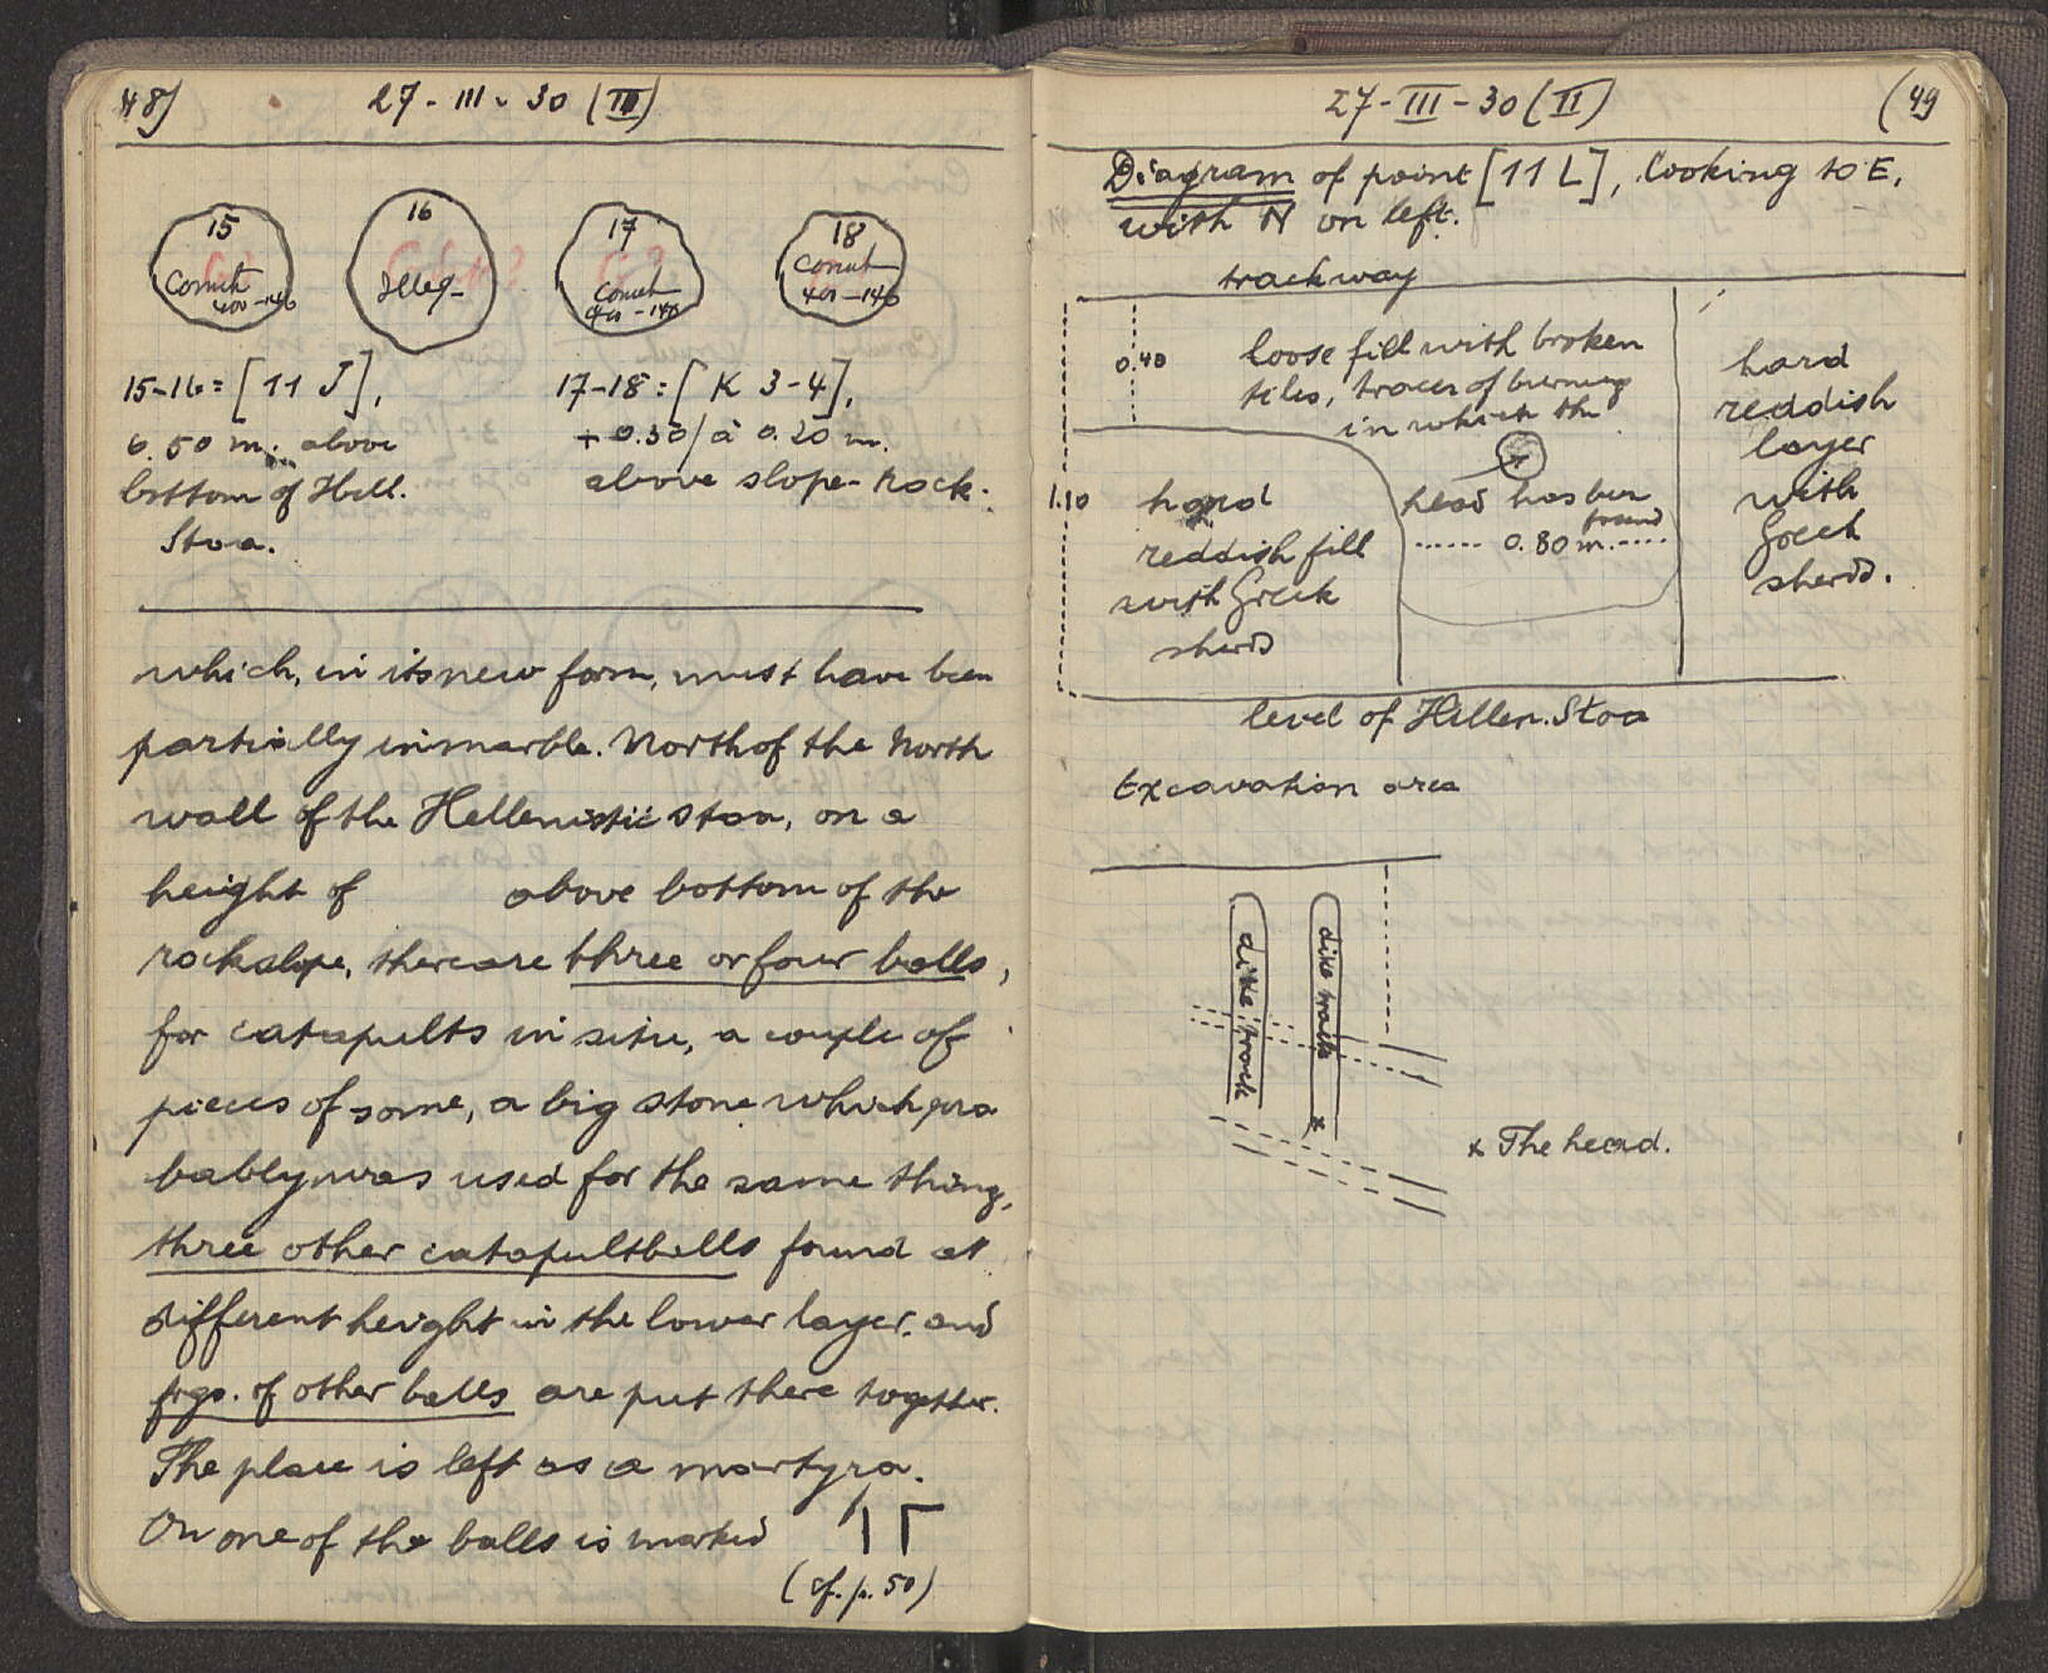 48)
27 - III - 30 (II)
15
Corinth
400-146
16
Illeg-
17
Corinth
400-146
18
Corinth
400-146
15-16 = [11 J],
0.50 m. above
bottom of Hell.
Stoa.
17-18 = [K 3-4],
+ 0.30/à 0.20 m.
above slope-rock.
which, in its new form, must have been
partially in marble. North of the North
wall of the Hellenistic stoa, on a
height of above bottom of the
rockslope, there are three or four balls,
for catapults in situ, a couple of
pieces of same, a big stone which pro
bably was used for the same thing,
three other catapultballs found at
different height in the lower layer, and
frgs. of other balls are put there together.
The place is left as a martyra.
On one of the balls is marked 1Γ
(cf. p. 50)
27 - III - 30 (II)
(49
Diagram of point [11 L], looking to E,
with N on left.
trackway
0.40
loose fill with broken
tiles, traces of burning
in which the
head has been
found
0.80 m.
1.10
hard
reddish fill
with Greek
sherds
hard
reddish
layer
with
Greek
sherds.
level of Hellen. Stoa
Excavation area
dike track
dike track
x
x The head.